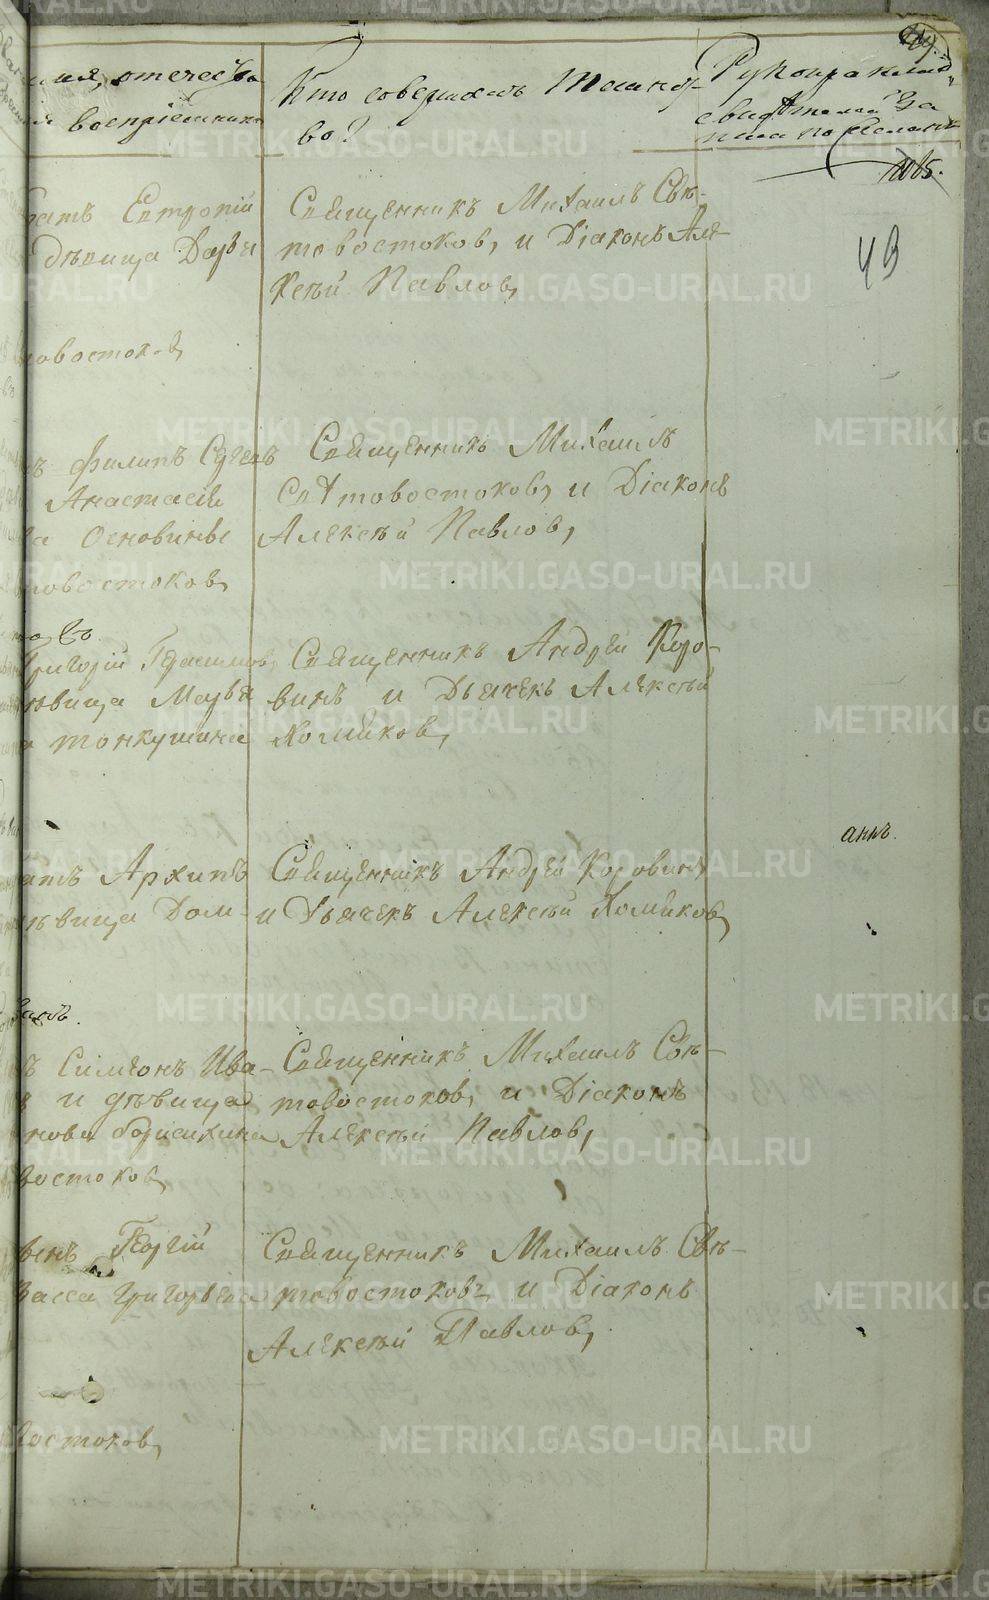 имя, отечество
воспріемник
Кто совершалъ таинст-
во?
Рукоприклад
свидѣтелей за
писи по желан
1065.
43
братъ Евтропій
дѣвица Дарья
Священникъ Михаилъ Свѣ-
товостоковъ, и Діаконъ Але-
ксѣй Павловъ,
товостоковъ,
Филипъ Сергѣевъ
Анастасія
Основинье
товостоковъ,
Священникъ Михаилъ
Свѣтовостоковъ, и Діаконъ
Алексѣй Павловъ,
Григорій Герасимовъ,
дѣвица Марья
Тонкушина
Священникъ Андрей Коро-
винъ и Дьячекъ Алексѣй
Хомяковъ,
аннъ.
братъ Архипъ
дѣвица Дом-
Священникъ Андрей Коровинъ
и Дьячекъ Алексѣй Хомяковъ,
Симеонъ Ива-
и дѣвица
нова Борисихина
востоковъ,
Священникъ Михаилъ Свѣ-
товостоковъ, и Діаконъ
Алексѣй Павловъ,
Георгій
Васса Григорьева
Священникъ Михаилъ Свѣ-
товостоковъ, и Діаконъ
Алексѣй Павловъ,
востоковъ,
METRIKI.GASO-URAL.RU